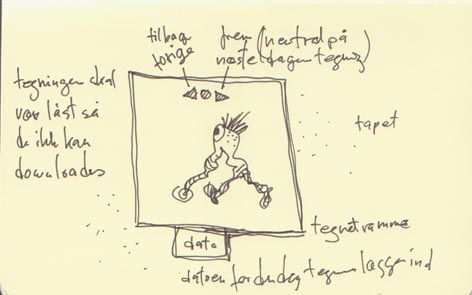 tilbage
forige
frem (neutral på
næste dagen tegning)
tegningen skal
vær låst så
de ikke kan
downloades
tapet
tegnet ramme
dato
datoen for den dag tegningen lægges ind